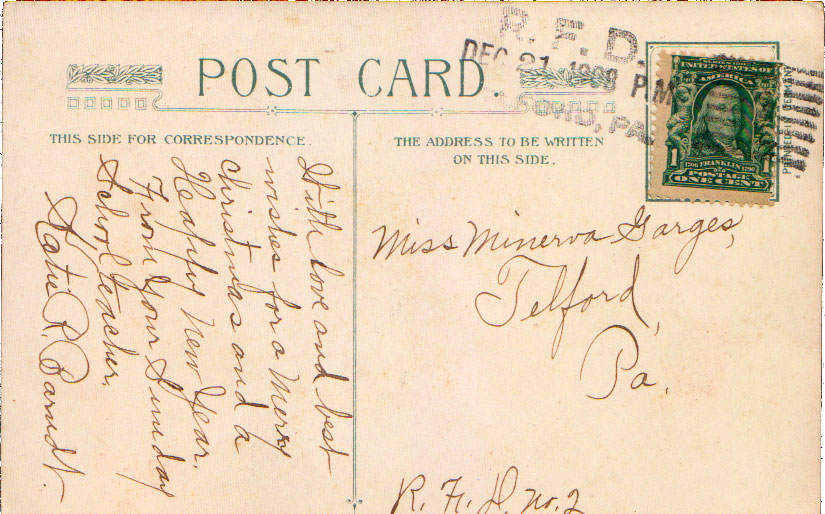 POST CARD.
R. F. D.
DEC 21 1908 P.M.
FORD, PA.
THIS SIDE FOR CORRESPONDENCE.
THE ADDRESS TO BE WRITTEN
ON THIS SIDE.
UNITED STATES OF
AMERICA
1706 FRANKLIN 1790
1 1
POSTAGE
ONE CENT
With love and best
wishes for a Merry
Christmas and a
Heappy New Year.
From Your Sunday
School teacher.
Katie R. Barndt.
Miss Minerva Garges,
Telford,
Pa.
R. F. D. no. 2